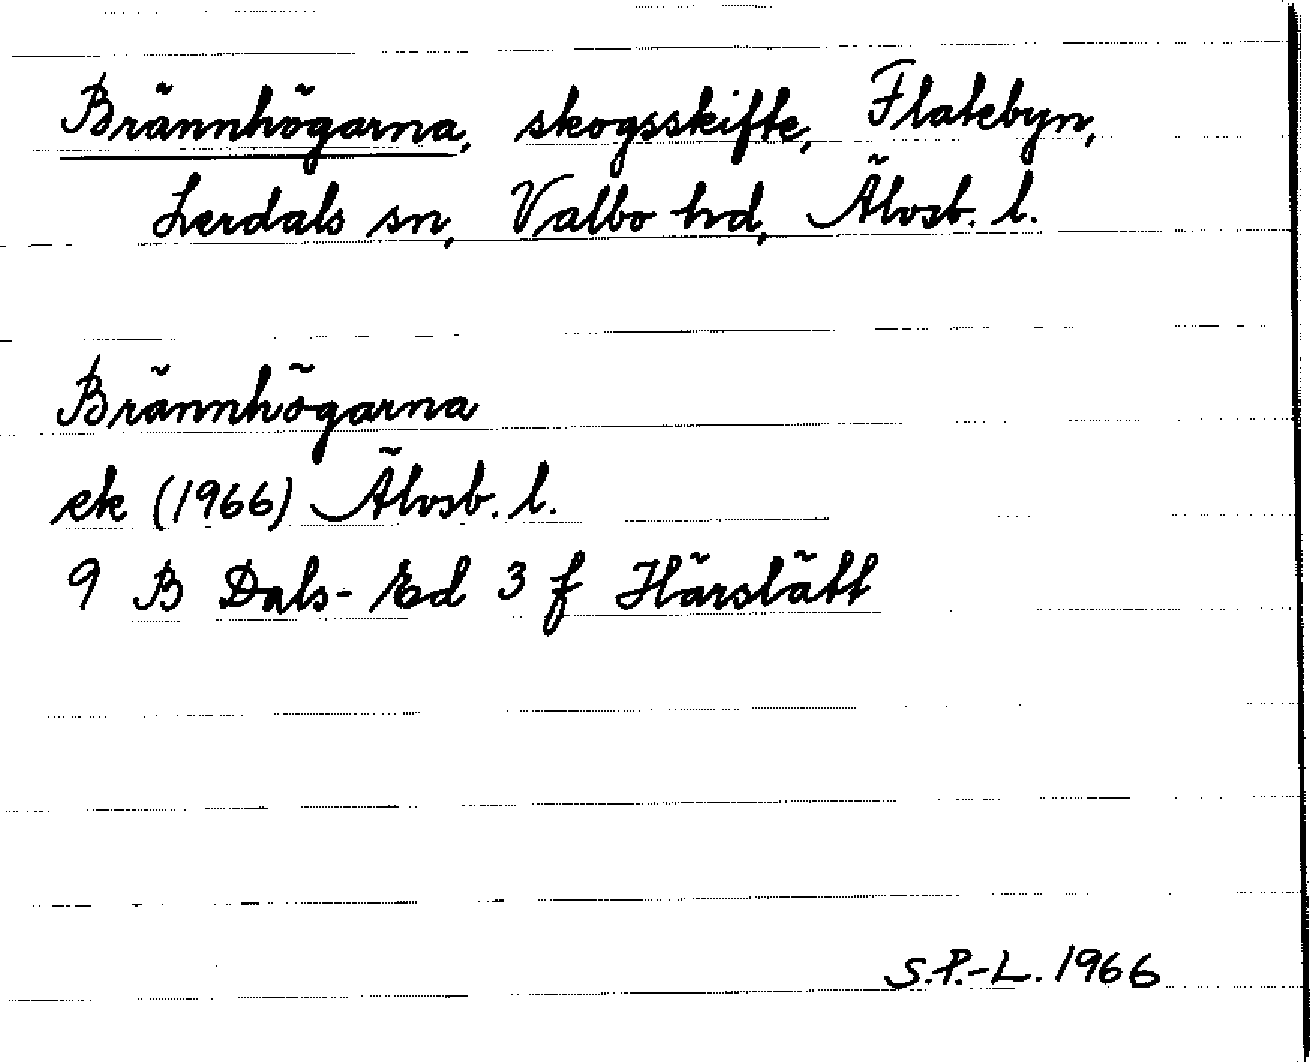 Brännhögarna, skogsskifte, Flatebyn,
Lerdals sn, Valbo hd, Älvsb. l.
Brännhögarna
ek (1966) Älvsb. l.
9 B Dals-Ed 3 f Härslätt
S.P.-L. 1966